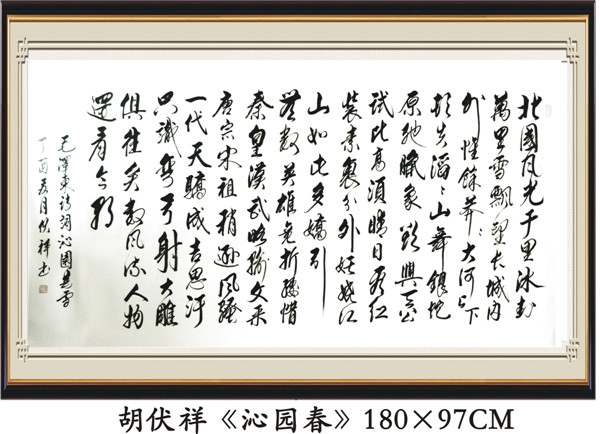 北國风光千里冰封
萬里雪飄望长城内
外惟餘莽〻大河上下
顿失滔〻山舞银蛇
原驰蜡象欲與天公
试比高须晴日看红
装素裹分外妖娆江
山如此多嬌引
無数英雄竞折腰惜
秦皇漢武略输文采
唐宗宋祖稍逊风骚
一代天驕成吉思汗
只識弯弓射大雕
俱往矣数风流人物
還看今朝
毛澤東诗词沁園春雪
丁酉夏月伏祥书
胡伏祥《沁园春》180×97CM